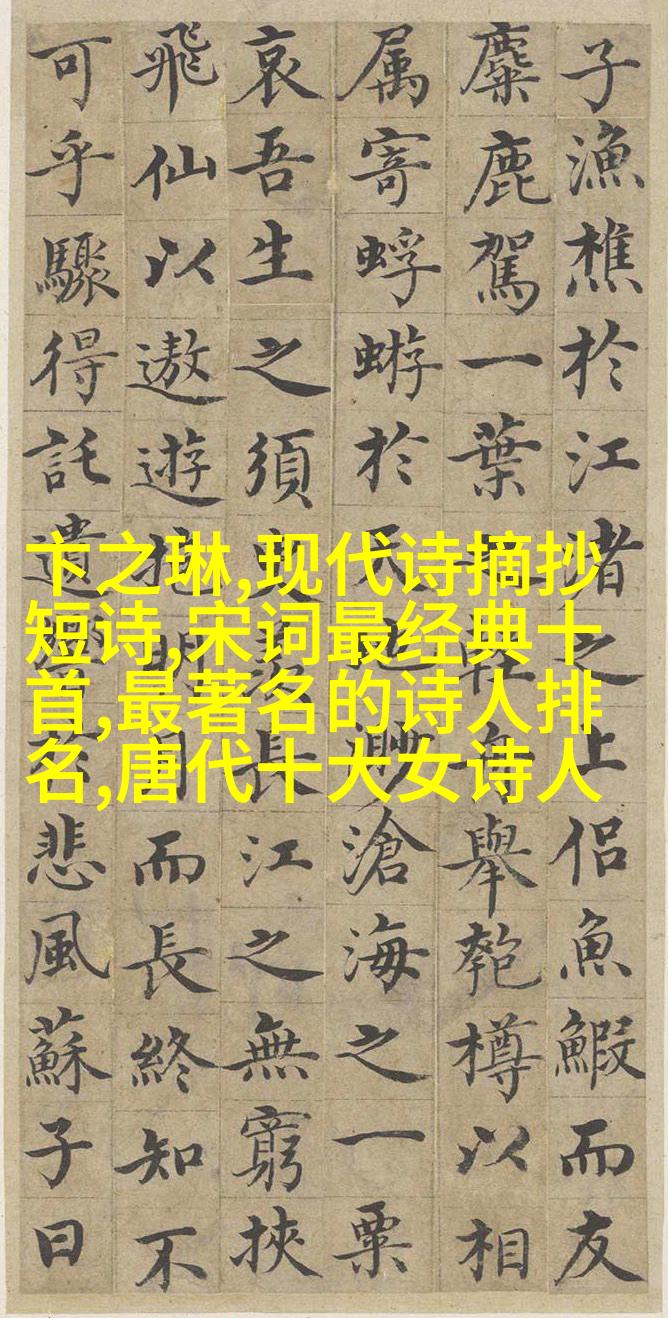 子漁樵於江渚之上侶魚鰕而友
麋鹿駕一葉之輕舟舉匏樽以相
属寄蜉蝣於天地渺滄海之一粟
哀吾生之須臾羨長江之無窮挾
飛仙以遨遊抱明月而長終知不
可乎驟得託遺響於悲風蘇子曰
卞之琳,现代诗摘抄
短诗,宋词最经典十
首,最著名的诗人排
名,唐代十大女诗人